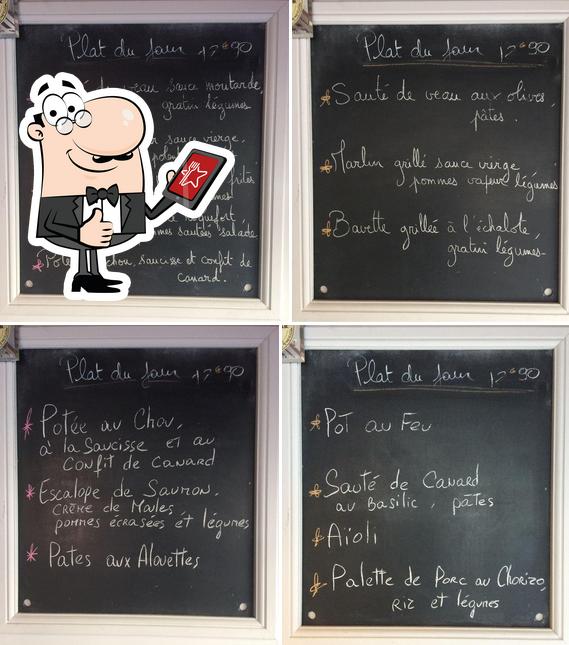 Plat du jour 17€90
de veau sauce moutarde,
gratin légumes
sauce vierge,
roquefort,
sautées salade
chou, saucisse et confit de
canard.
Plat du jour 17€90
Sauté de veau aux olives,
pâtes.
Marlin grillé sauce vierge
pommes vapeur légumes
Bavette grillée à l'échalote,
gratin légumes-
Plat du jour 17€90
Potée au Chou,
à la Saucisse et au
Confit de Canard
Escalope de Saumon,
Crème de Moules,
pommes écrasées et légumes
Pates aux Alouettes
Plat du jour 17€90
Pot au Feu
Sauté de Canard
au Basilic, pâtes
Aïoli
Palette de Porc au Chorizo,
Riz et légumes